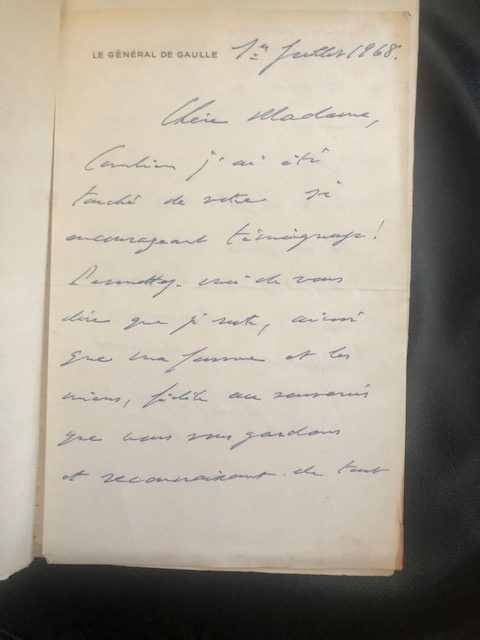 LE GÉNÉRAL DE GAULLE 1er Juillet 1968.
Chère Madame,
Combien j'ai été
touché de votre si
encourageant témoignage !
Permettez-moi de vous
dire que je reste, ainsi
que ma femme et les
miens, fidèle au souvenir
que nous vous gardons
et reconnaissant de tout